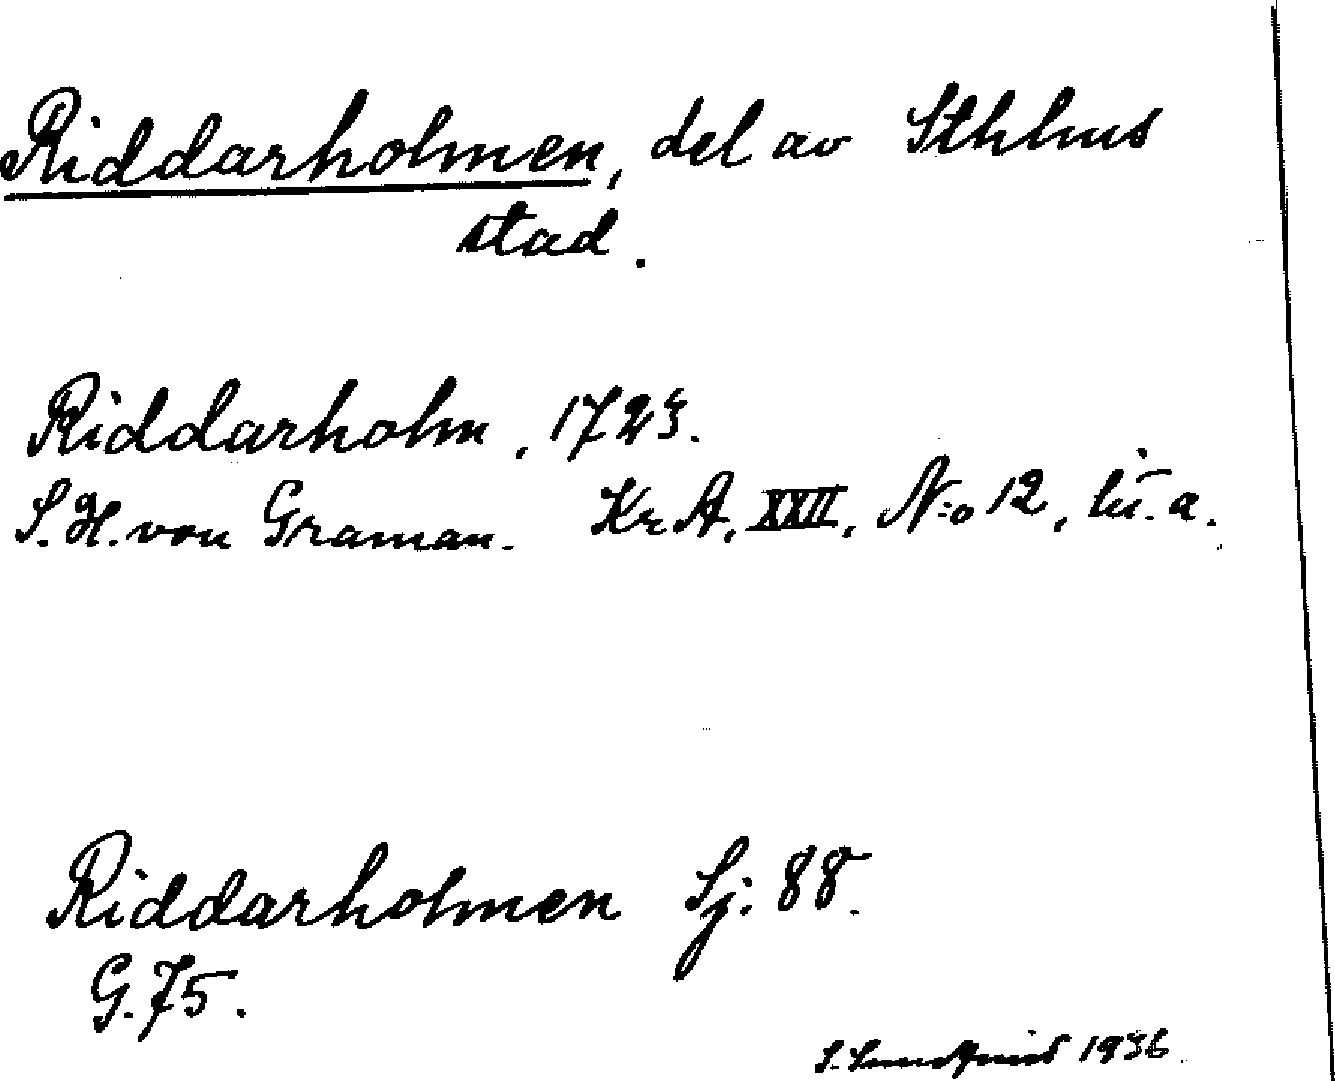 Riddarholmen, del av Sthlms
stad.
Riddarholm, 1723.
S. H. von Graman. Kr. A. XXII, N:o 12, lit. a.
Riddarholmen Sj: 88.
G. 75.
S. Sundquist 1936